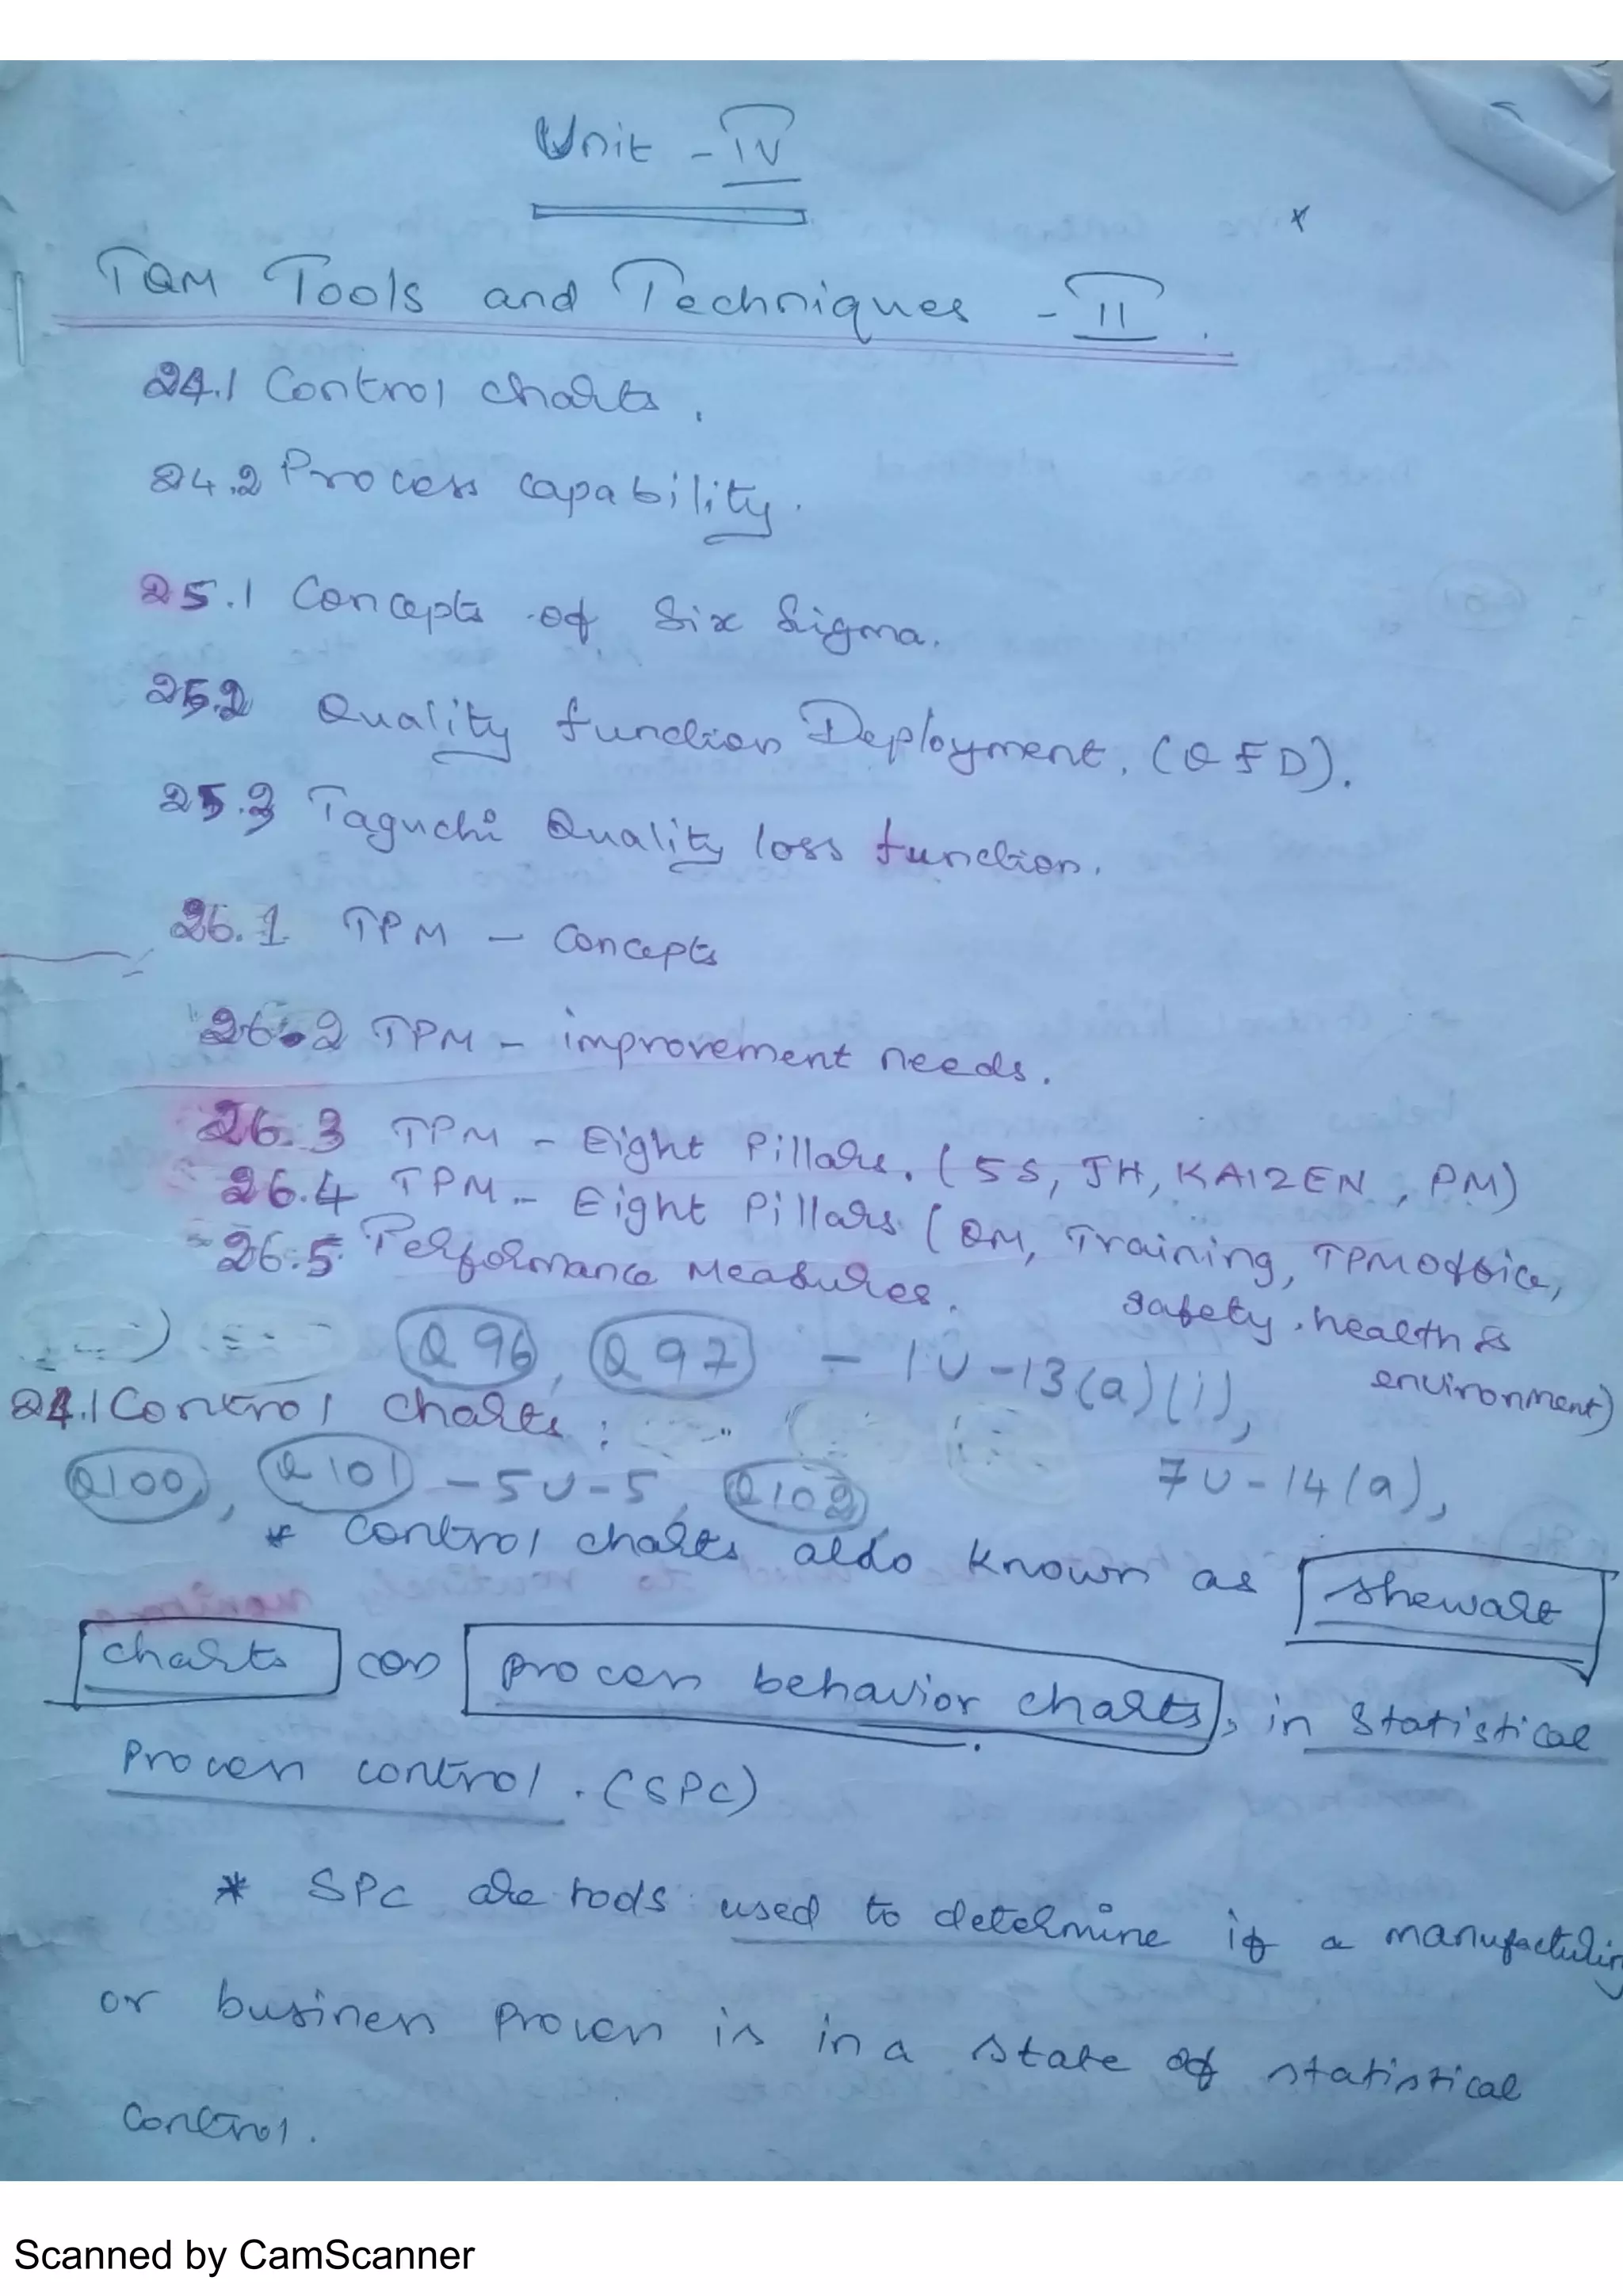 Unit - IV
TQM Tools and Techniques - II.
24.1 Control charts.
24.2 Process capability.
25.1 Concepts of Six Sigma.
25.2 Quality function Deployment. (QFD).
25.3 Taguchi Quality loss function.
26.1 TPM - Concepts
26.2 TPM - improvement needs.
26.3 TPM - Eight Pillars. (5S, JH, KAIZEN, PM)
26.4 TPM - Eight Pillars (QM, Training, TPM office,
safety, health &
environment)
26.5 Performance Measures.
Q96, Q97 - 1U-13(a)(i),
24.1 Control charts:
Q100, Q101 - 5U-5, Q102, 7U-14(a),
* Control charts also known as Shewart
charts (or) process behavior charts, in Statistical
Process control. (SPC)
* SPC are tools used to determine if a manufacturing
or business process is in a state of statistical
control.
Scanned by CamScanner